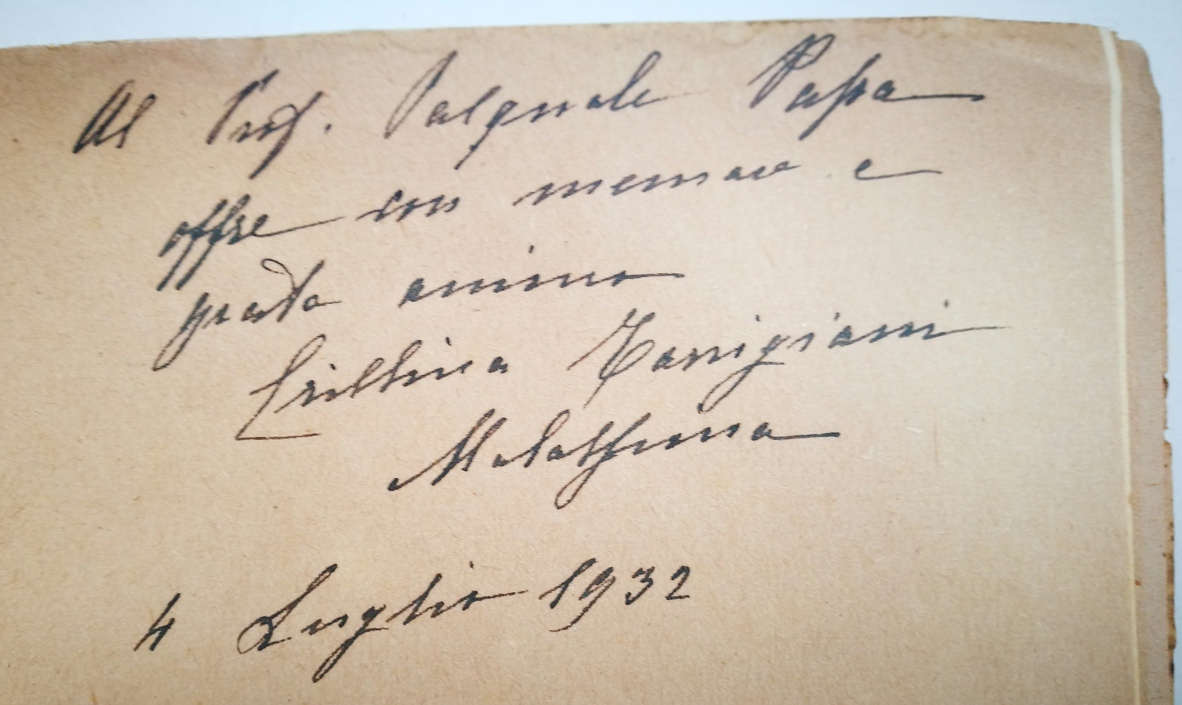 Al Prof. Pasquale Papa
offre con memore e
grato animo
Cristina Torrigiani
Malaspina
4 Luglio 1932